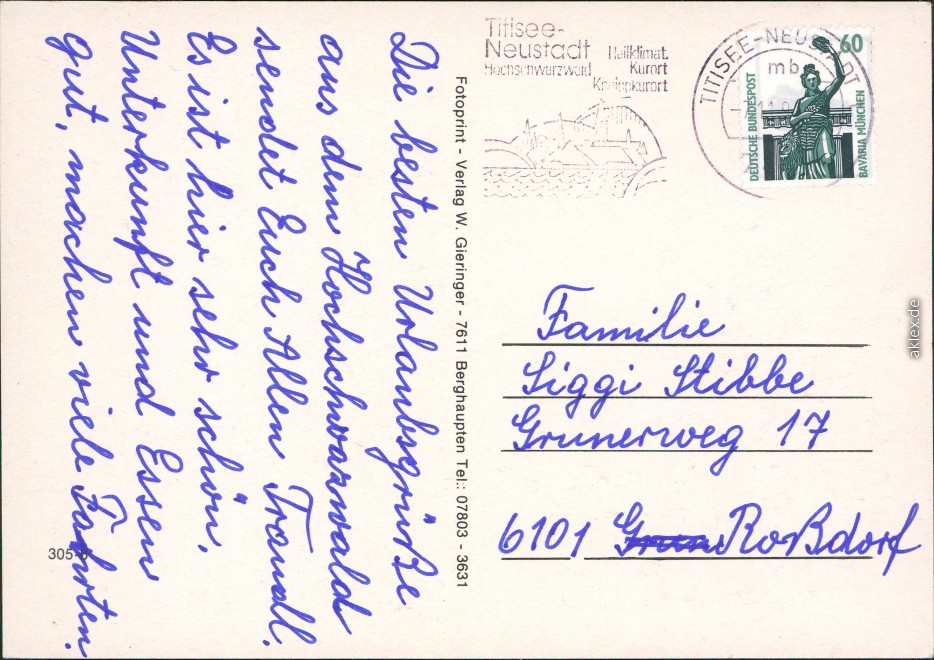 Die besten Urlaubsgrüße
aus dem Hochschwarzwald
sendet Euch Allen Traudl.
Es ist hier sehr schön,
Unterkunft und Essen
gut, machen viele Fahrten.
305-
Fotoprint - Verlag W. Gieringer - 7611 Berghaupten Tel.: 07803 - 3631
Titisee-
Neustadt
Hochschwarzwald
Heilklimat.
Kurort
Kneippkurort
TITISEE-NEUSTADT
mb
60
DEUTSCHE BUNDESPOST
BAVARIA MÜNCHEN
Familie
Siggi Stibbe
Grunerweg 17
6101 Roßdorf
aklex.de